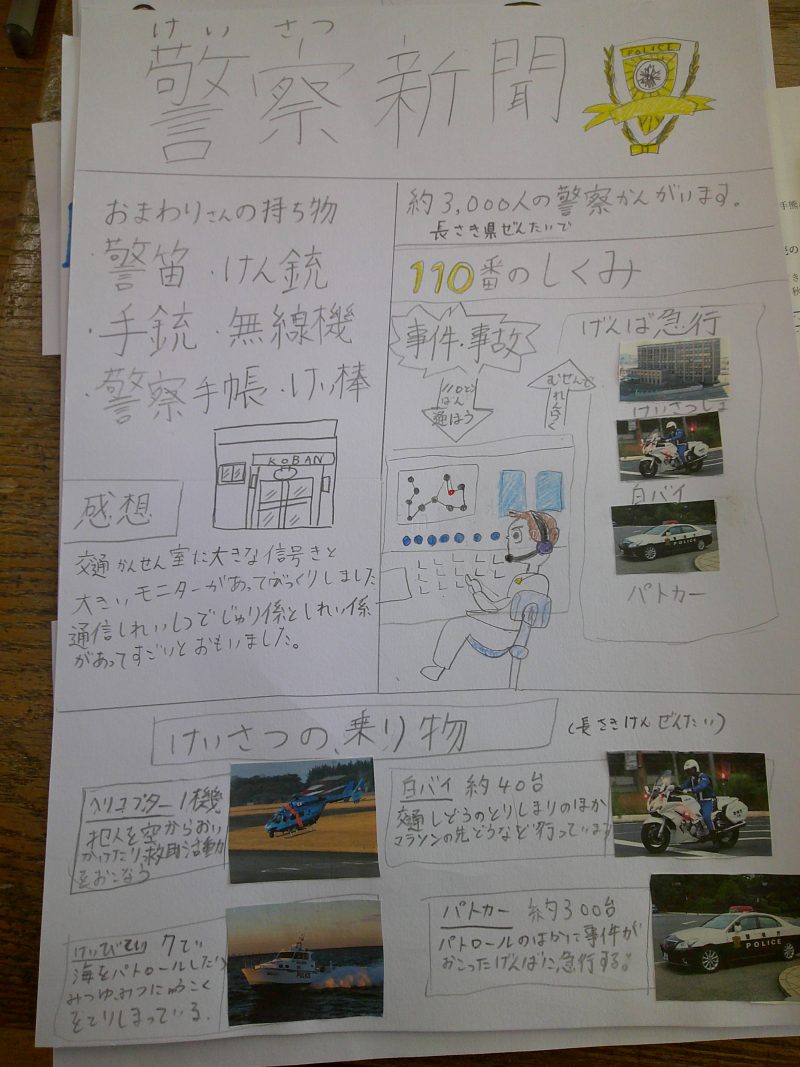 けいさつ
警察新聞
POLICE
おまわりさんの持ち物
・警笛・けん銃
・手銃・無線機
・警察手帳・けい棒
KOBAN
感想
交通かんせん室に大きな信号きと
大きいモニターがあってびっくりしました
通信しれいしつでじゅり係としれい係
があってすごいとおもいました。
約3,000人の警察かんがいます。
長さき県ぜんたいで
110番のしくみ
事件・事故
110
ばん
通ほう
むせんで
れんらく
げんば急行
けいさつしょ
白バイ
パトカー
けいさつの乗り物
(長さきけんぜんたい)
ヘリコプター1機
犯人を空からおい
かけたり救助活動
をおこなう
白バイ 約40台
交通しどうのとりしまりのほか
マラソンの先どうなど行っています
けいびてい 7てい
海をパトロールしたり
みつゆ、みつにゅうこく
をとりしまっている。
POLICE
パトカー 約300台
パトロールのほかに事件が
おこったげんばに急行する。
POLICE